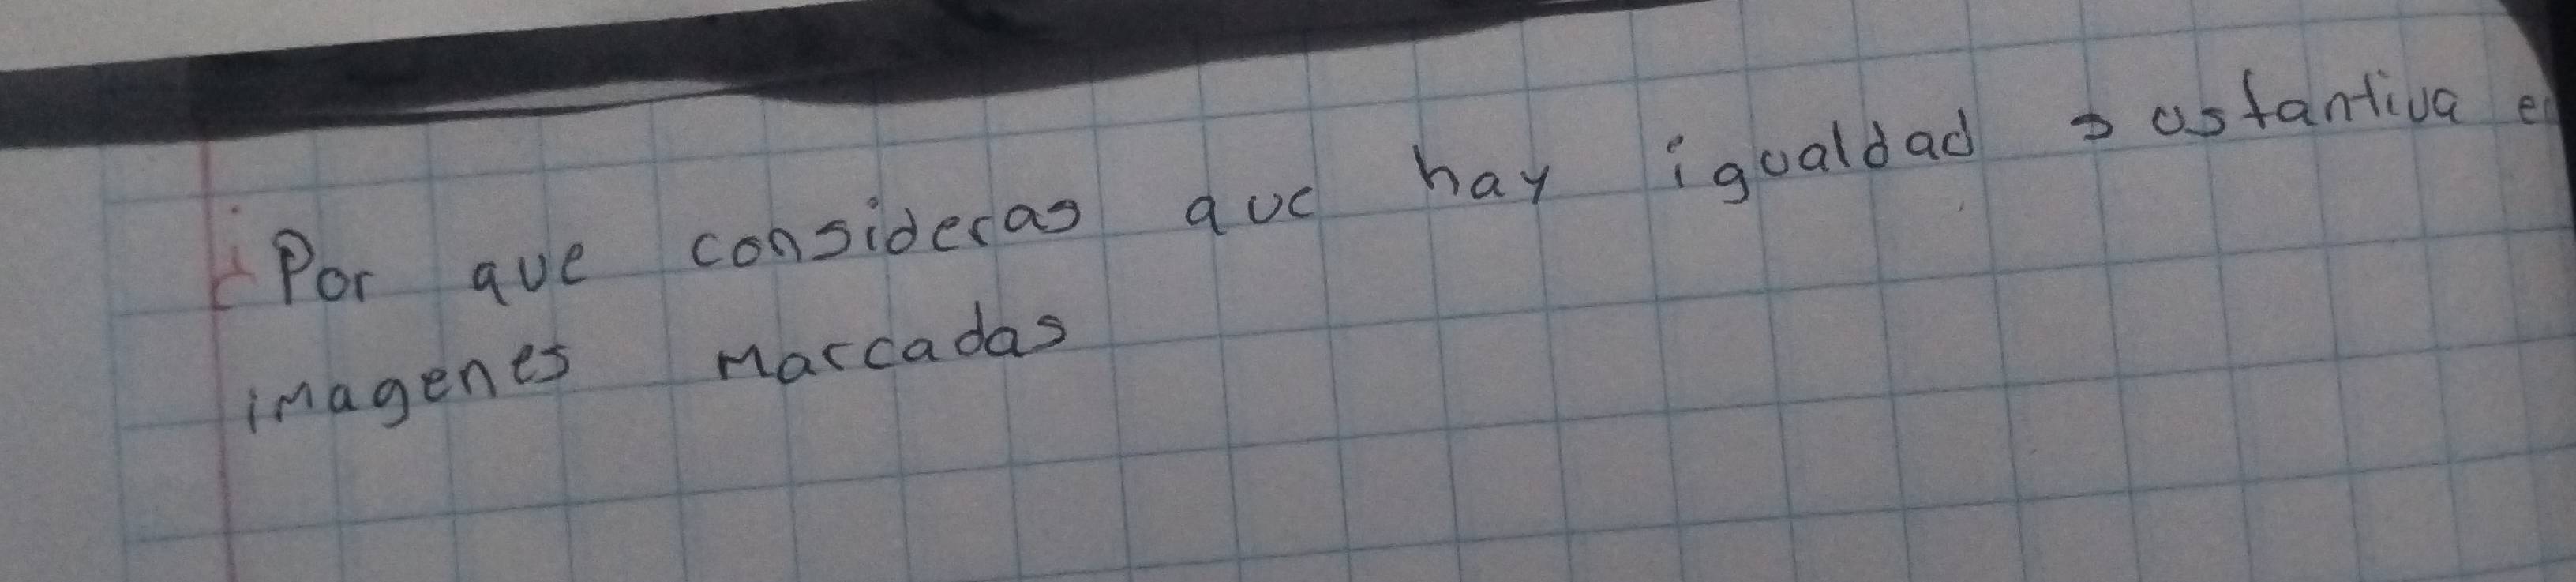 ¿Por que consideras que hay igualdad sustantiva en
imagenes marcadas